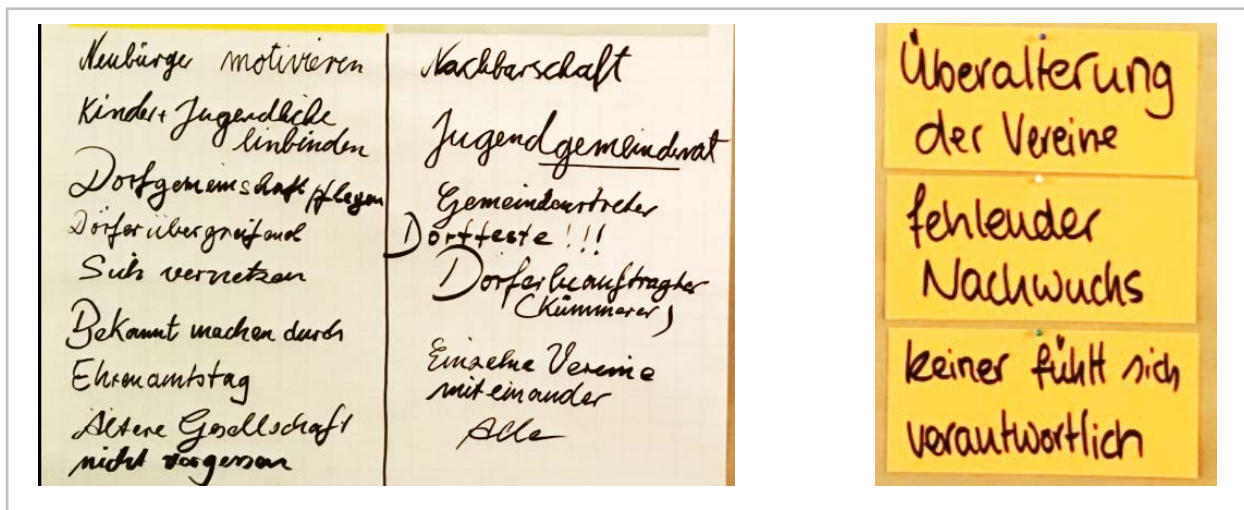 Neubürger motivieren
Kinder + Jugendliche
einbinden
Dorfgemeinschaft pflegen
Dörferübergreifend
Sich vernetzen
Bekannt machen durch
Ehrenamtstag
Ältere Gesellschaft
nicht vergessen
Nachbarschaft
Jugendgemeinderat
Gemeindevertreter
Dorffeste!!!
Dörferbeauftragter
(Kümmerer)
Einzelne Vereine
miteinander
Alle
Überalterung
der Vereine
fehlender
Nachwuchs
keiner fühlt sich
verantwortlich